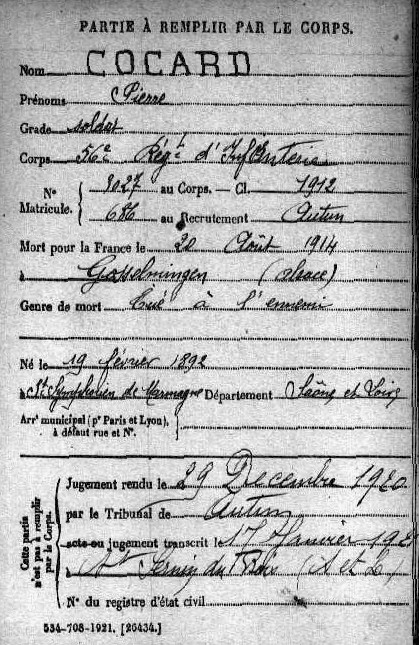 PARTIE À REMPLIR PAR LE CORPS.
Nom COCARD
Prénoms Pierre
Grade soldat
Corps 56e Régt d'Infanterie
N° Matricule. { 3027 au Corps. — Cl. 1912
686 au Recrutement Autun
Mort pour la France le 20 Août 1914
à Gosselmingen (alsace)
Genre de mort tué à l'ennemi
Né le 19 février 1892
à St Symphorien de Marmagne Département Saône et Loire
Arrt municipal (pr Paris et Lyon), à défaut rue et N°.
Cette partie n'est pas à remplir par le Corps.
Jugement rendu le 29 Decembre 1920
par le Tribunal de Autun
acte ou jugement transcrit le 17 Janvier 192
à St Sernin du Bois (S et L)
N° du registre d'état civil
534-708-1921. [26434.]